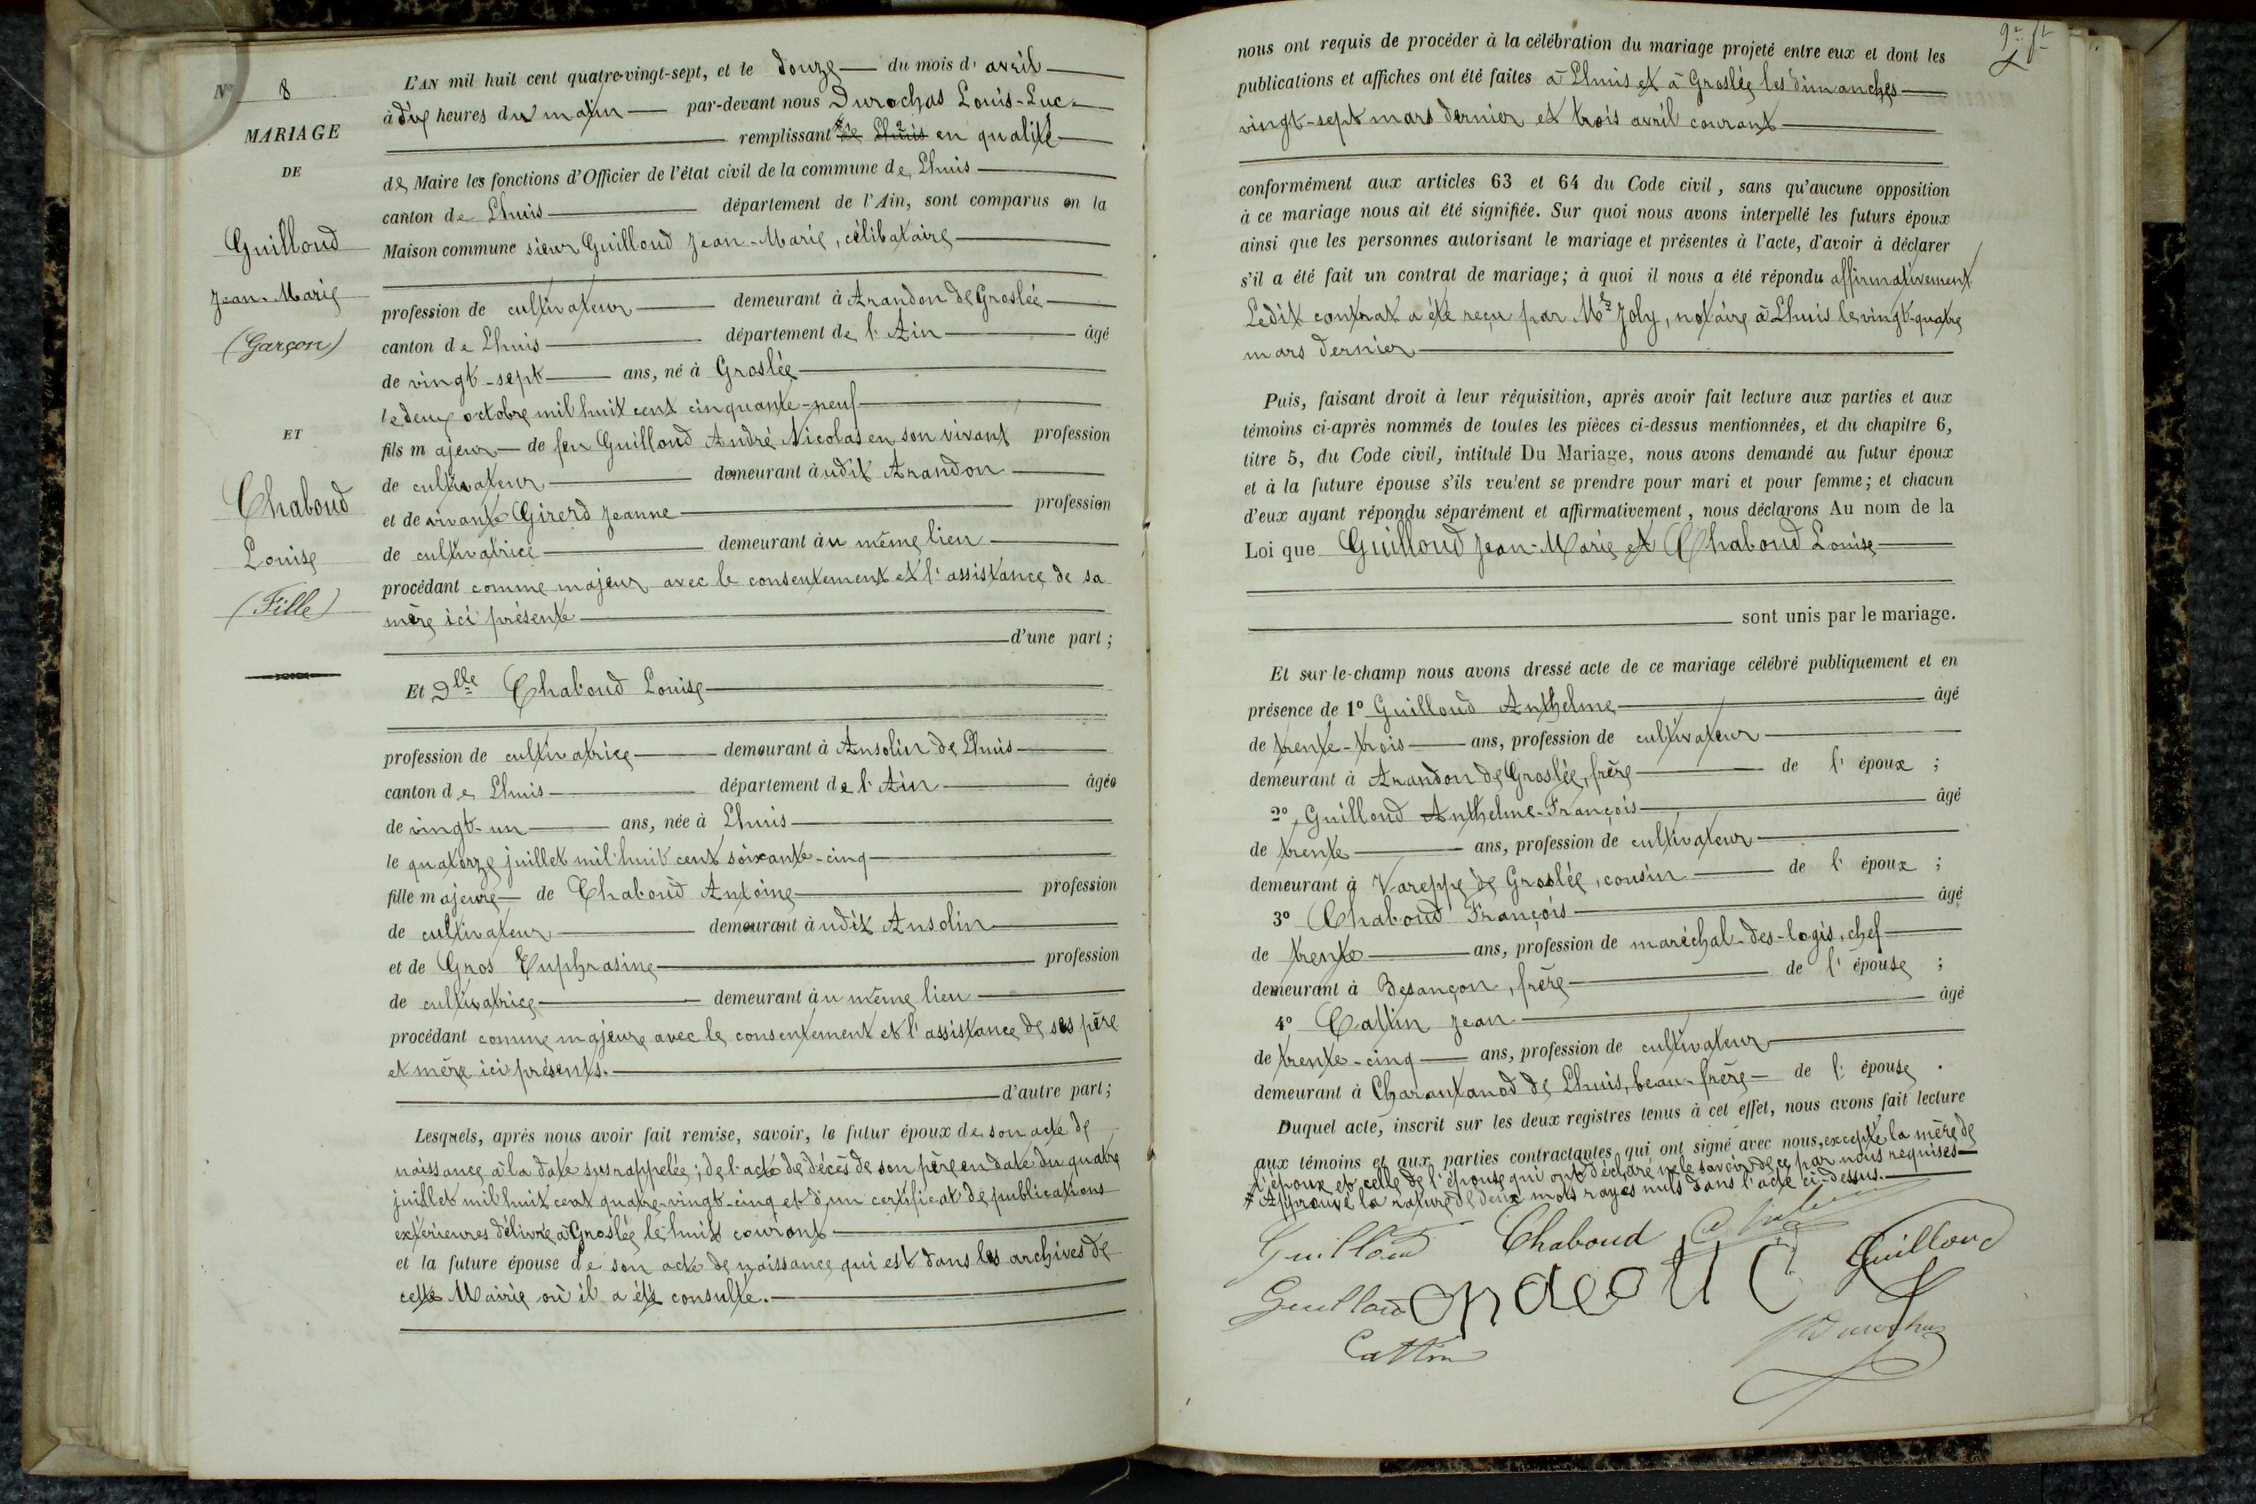 N° 8
MARIAGE
DE
Guilloud
Jean-Marie
(Garçon)
ET
Chaboud
Louise
(Fille)
L'AN mil huit cent quatre-vingt-sept, et le douze du mois d'avril
à dix heures du matin par-devant nous Durochas Louis-Luc
remplissant de Lhuis en qualité
de Maire les fonctions d'Officier de l'état civil de la commune de Lhuis
canton de Lhuis département de l'Ain, sont comparus en la
Maison commune sieur Guilloud Jean-Marie, célibataire
profession de cultivateur demeurant à Arandon de Groslée
canton de Lhuis département de l'Ain âgé
de vingt-sept ans, né à Groslée
le deux octobre mil huit cent cinquante-neuf
fils majeur de feu Guilloud André Nicolas en son vivant profession
de cultivateur demeurant àudit Arandon
et de vivante Girerd Jeanne profession
de cultivatrice demeurant àu même lieu
procédant comme majeur avec le consentement et l'assistance de sa
mère ici présente
d'une part;
Et Dlle Chaboud Louise
profession de cultivatrice demeurant à Ansolin de Lhuis
canton de Lhuis département de l'Ain âgée
de vingt-un ans, née à Lhuis
le quatorze juillet mil huit cent soixante-cinq
fille majeure de Chaboud Antoine profession
de cultivateur demeurant àudit Ansolin
et de Gros Euphrasine profession
de cultivatrice demeurant àu même lieu
procédant comme majeure avec le consentement et l'assistance de ses père
et mère ici présents.
d'autre part;
Lesquels, après nous avoir fait remise, savoir, le futur époux de son acte de
naissance à la date susrappelée; de l'acte de décès de son père en date du quatre
juillet mil huit cent quatre-vingt-cinq et d'un certificat de publications
extérieures délivré à Groslée le huit courant
et la future épouse de son acte de naissance qui est dans les archives de
cette Mairie où il a été consulté.
nous ont requis de procéder à la célébration du mariage projeté entre eux et dont les
publications et affiches ont été faites à Lhuis et à Groslée les dimanches
vingt-sept mars dernier et trois avril courant
conformément aux articles 63 et 64 du Code civil, sans qu'aucune opposition
à ce mariage nous ait été signifiée. Sur quoi nous avons interpellé les futurs époux
ainsi que les personnes autorisant le mariage et présentes à l'acte, d'avoir à déclarer
s'il a été fait un contrat de mariage; à quoi il nous a été répondu affirmativement
Ledit contrat a été reçu par Me Joly, notaire à Lhuis le vingt-quatre
mars dernier
Puis, faisant droit à leur réquisition, après avoir fait lecture aux parties et aux
témoins ci-après nommés de toutes les pièces ci-dessus mentionnées, et du chapitre 6,
titre 5, du Code civil, intitulé Du Mariage, nous avons demandé au futur époux
et à la future épouse s'ils veulent se prendre pour mari et pour femme; et chacun
d'eux ayant répondu séparément et affirmativement, nous déclarons Au nom de la
Loi que Guilloud Jean-Marie et Chaboud Louise
sont unis par le mariage.
Et sur-le-champ nous avons dressé acte de ce mariage célébré publiquement et en
présence de 1° Guilloud Anthelme âgé
de trente-trois ans, profession de cultivateur
demeurant à Arandon de Groslée, frère de l'époux;
2° Guilloud Anthelme-François âgé
de trente ans, profession de cultivateur
demeurant à Vareppe de Groslée, cousin de l'époux;
3° Chaboud François âgé
de trente ans, profession de maréchal-des-logis, chef
demeurant à Besançon, frère de l'épouse;
4° Cattin Jean âgé
de trente-cinq ans, profession de cultivateur
demeurant à Charantanod de Lhuis, beau-frère de l'épouse.
Duquel acte, inscrit sur les deux registres tenus à cet effet, nous avons fait lecture
aux témoins et aux parties contractantes qui ont signé avec nous, excepté la mère de
l'époux et celle de l'épouse qui ont déclaré ne le savoir de ce par nous requises
≠ Approuvé la rature de deux mots rayés nuls dans l'acte ci-dessus.
Guilloud Chaboud
Guilloud
Guilloud
Cattin Durochas